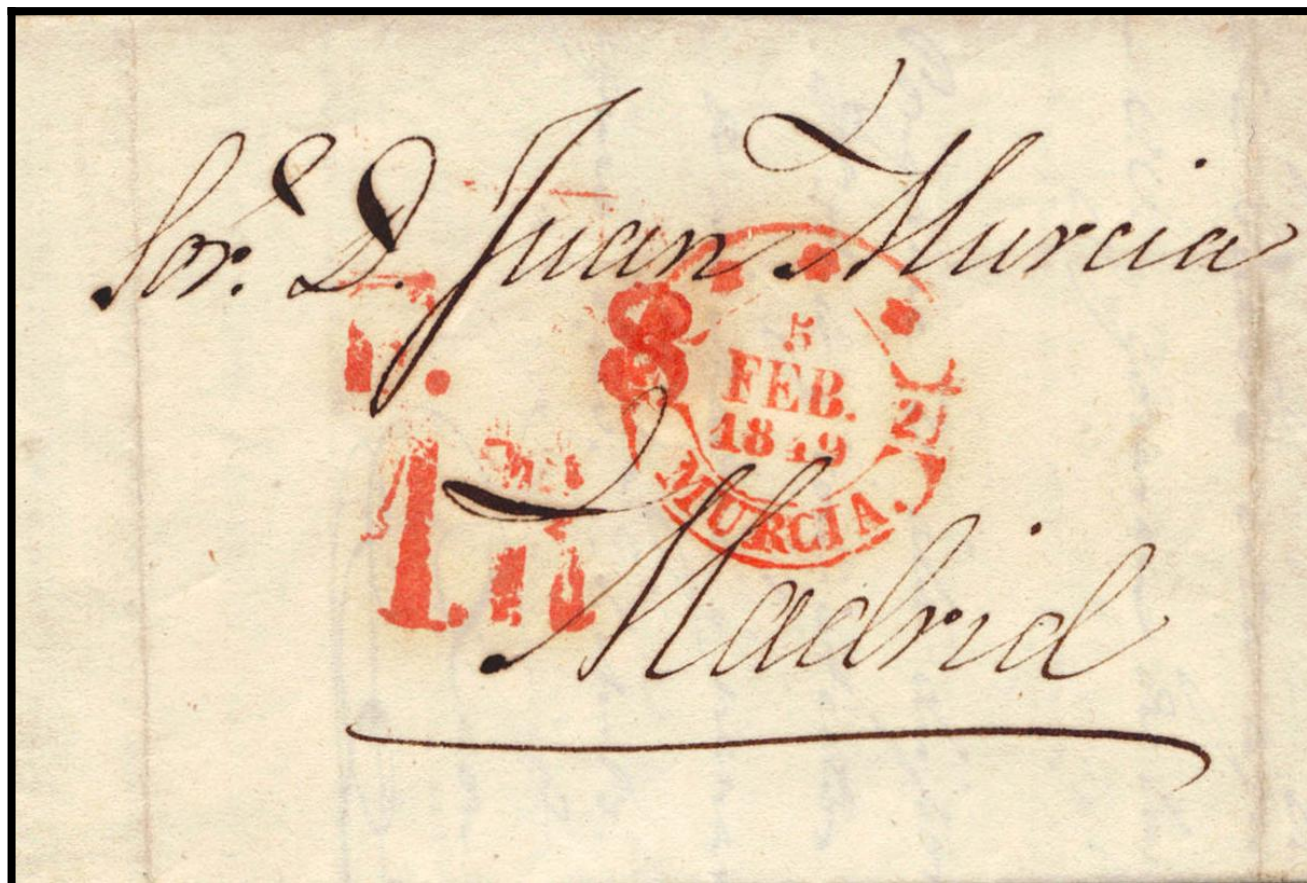 Sor. D. Juan Murcia
8
5
FEB.
1849
2
MURCIA.
Madrid